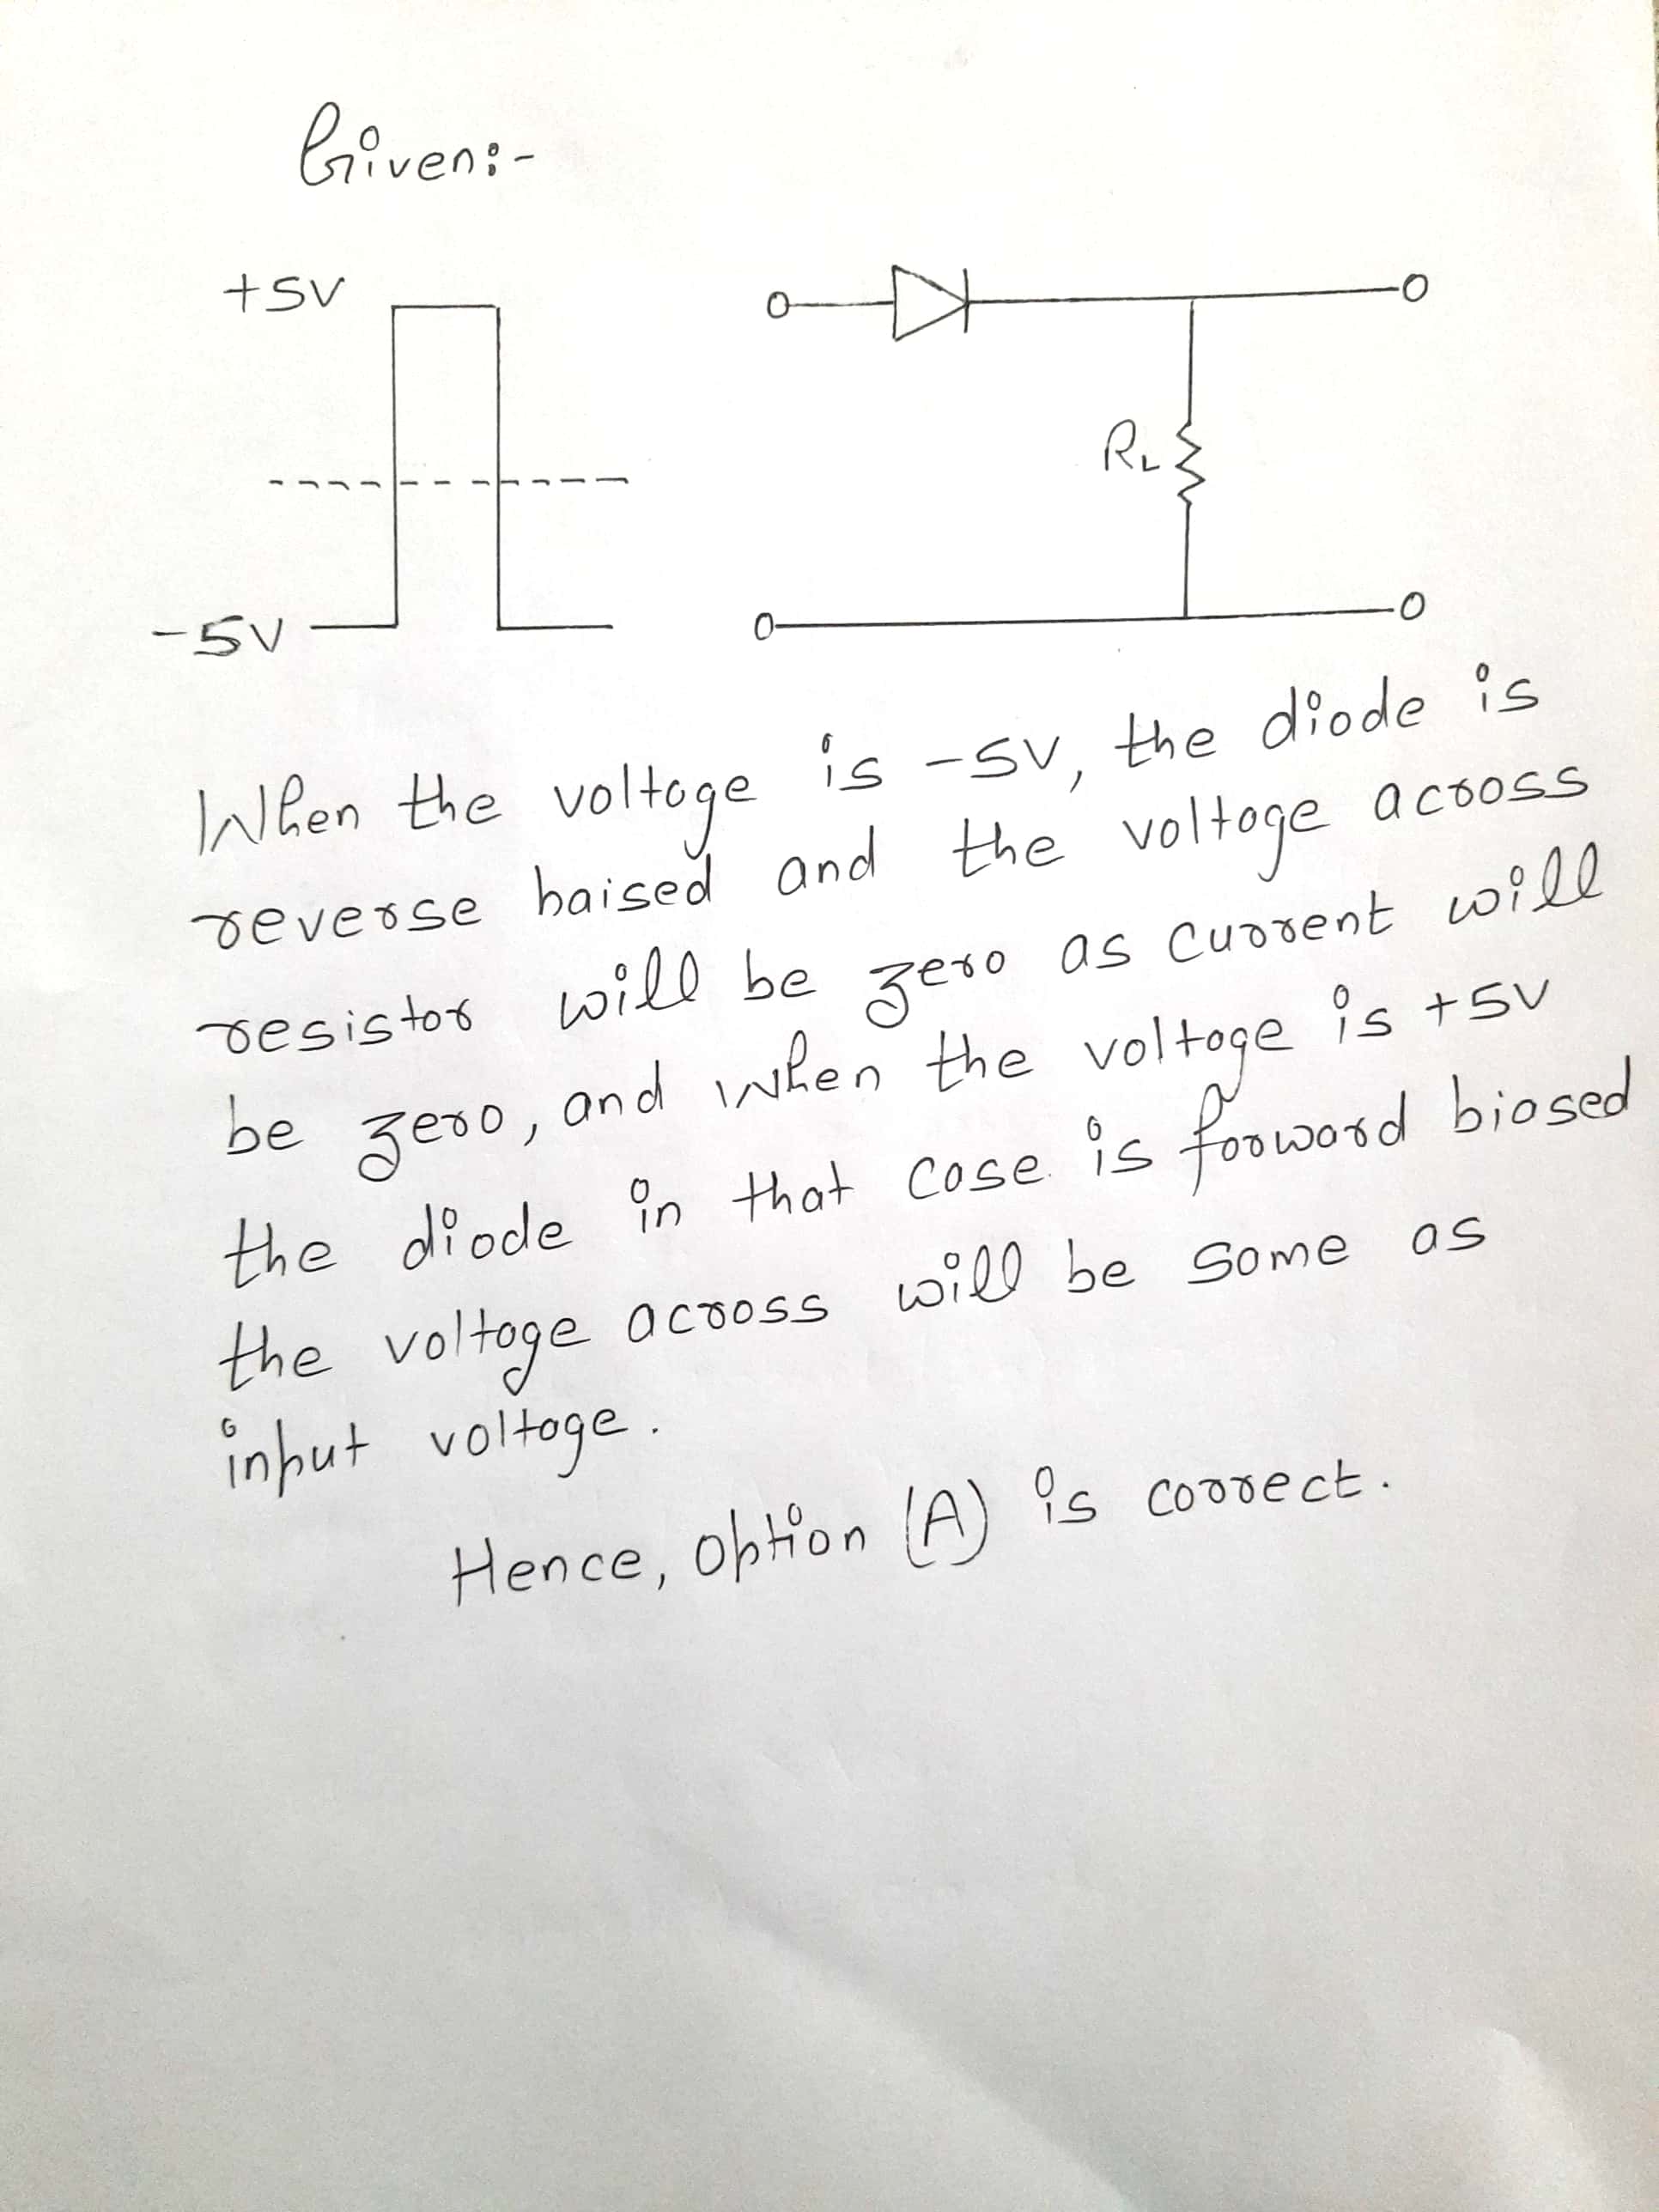 Given:-
+5V
-5V
RL
When the voltage is -5V, the diode is
reverse baised and the voltage across
resistor will be zero as current will
be zero, and when the voltage is +5V
the diode in that case is forward biased
the voltage across will be same as
input voltage.
Hence, option (A) is correct.